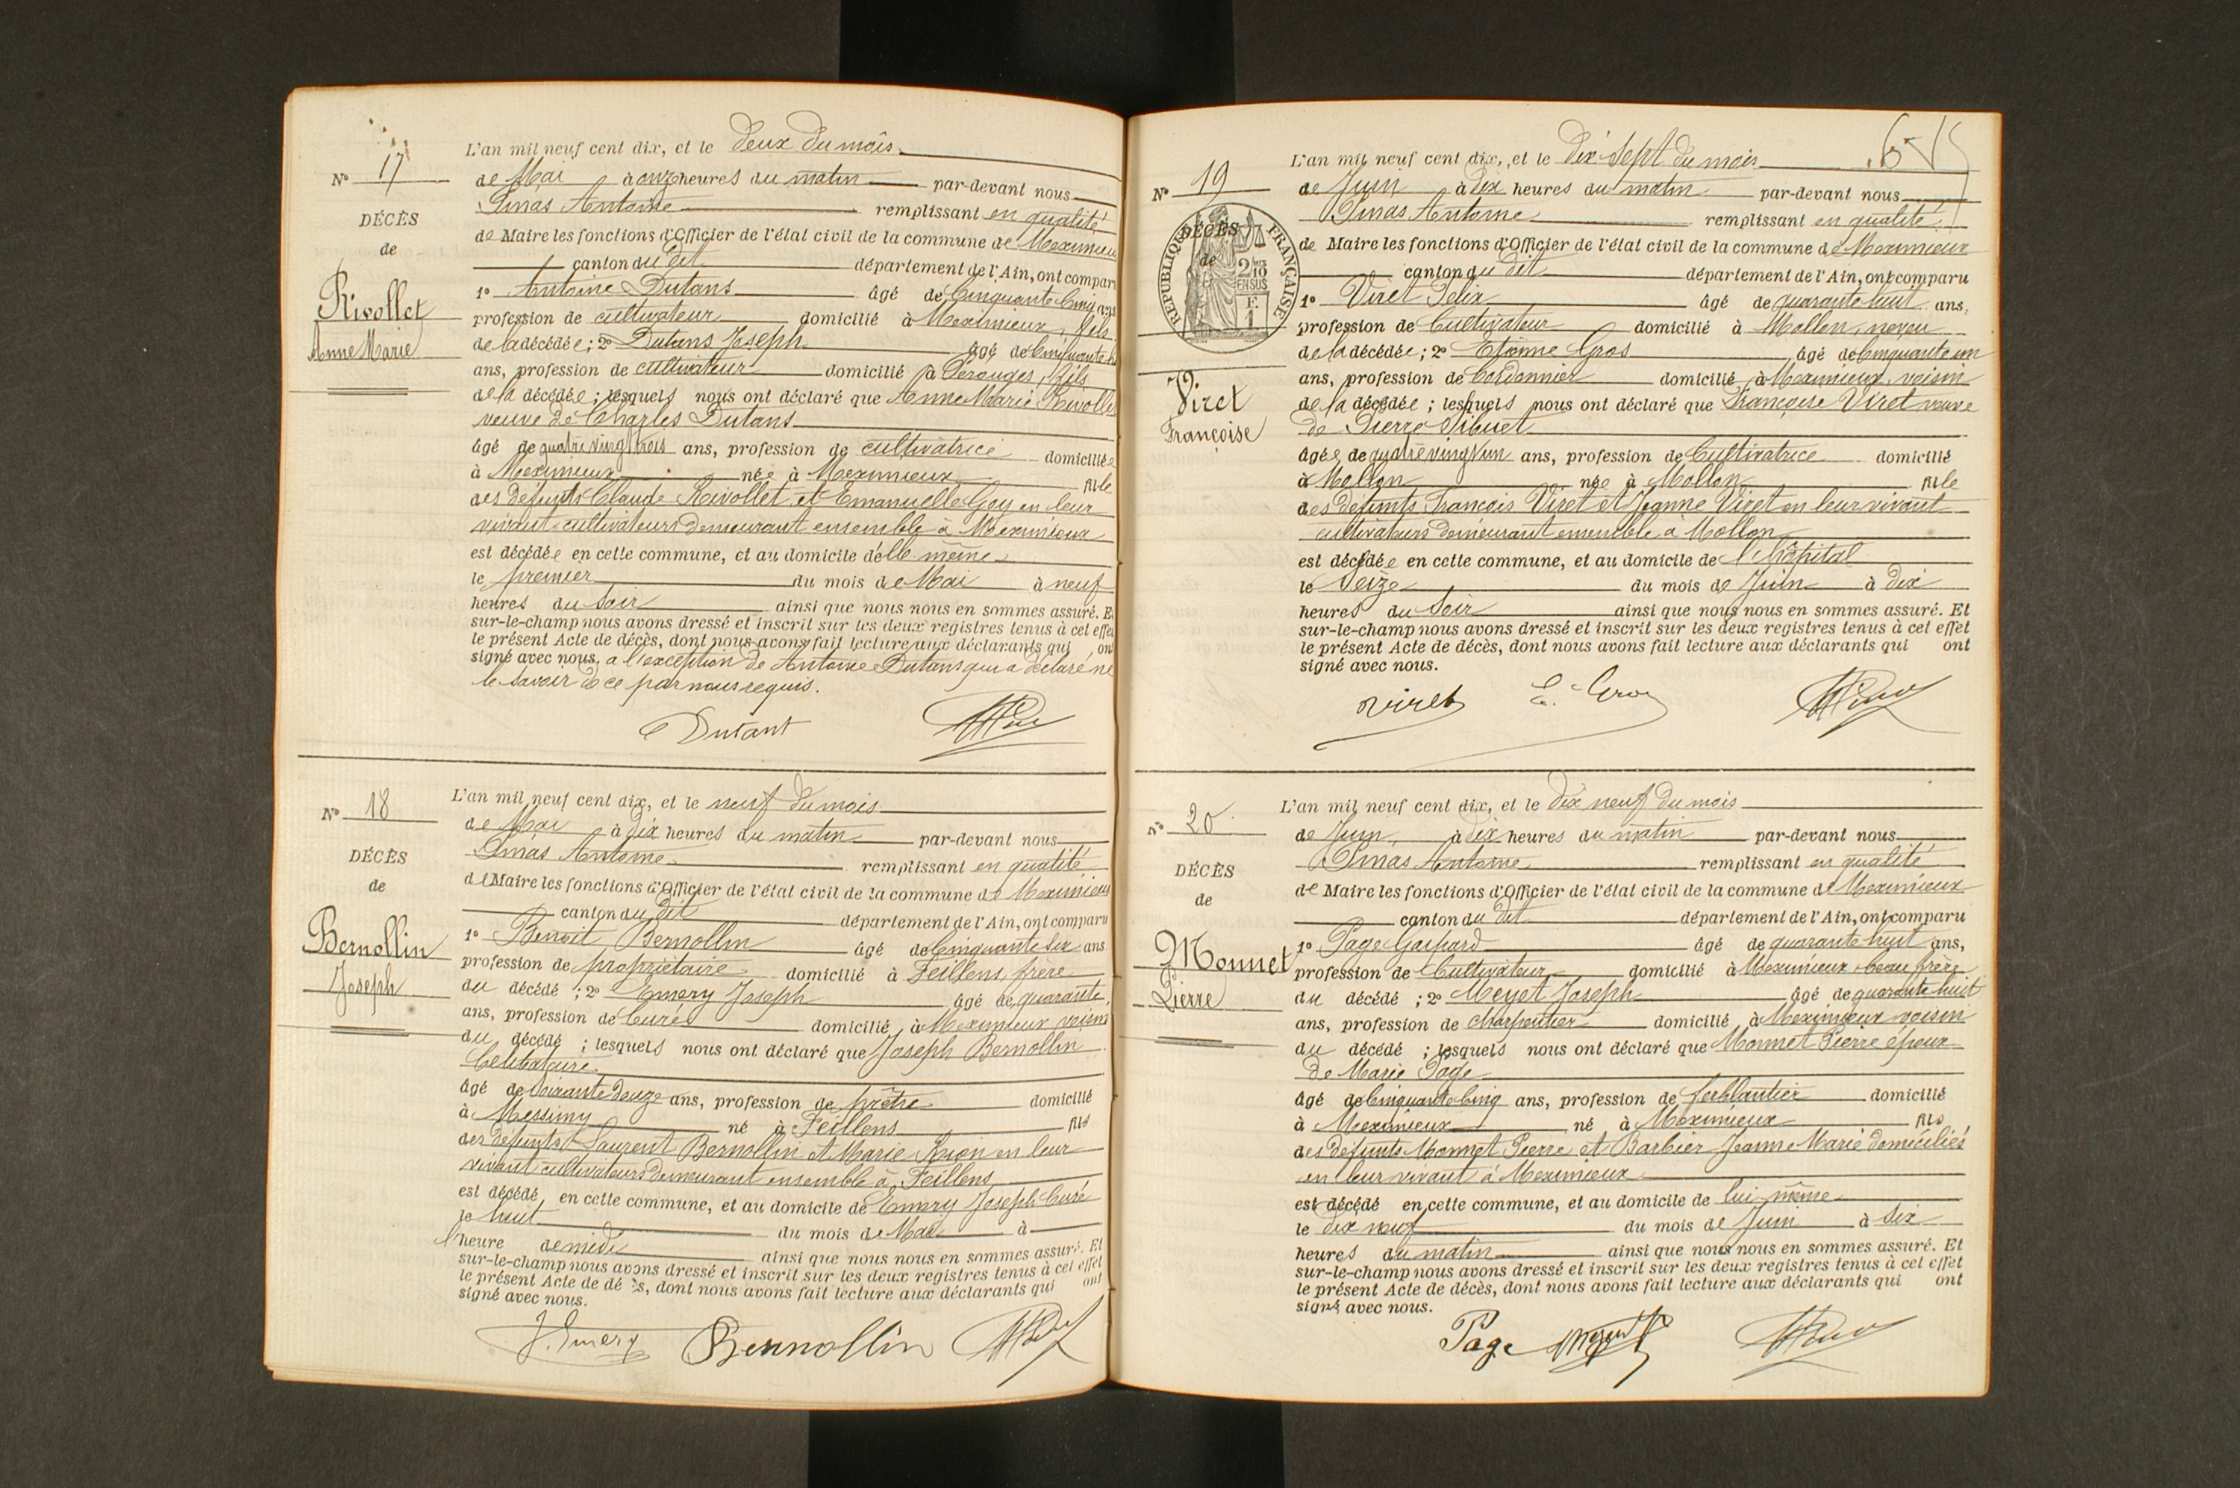 N° 17
DÉCÈS
de
Rivollet
Anne Marie
L'an mil neuf cent dix, et le deux du mois
de Mai à onze heures du matin par-devant nous
Pinas Antoine remplissant en qualité
de Maire les fonctions d'Officier de l'état civil de la commune de Meximieux
canton du dit département de l'Ain, ont comparu
1° Antoine Dutans âgé de Cinquante Cinq ans
profession de cultivateur domicilié à Meximieux, fils
de la décédée; 2° Dutans Joseph âgé de Cinquante
ans, profession de cultivateur domicilié à Pérouges, fils
de la décédée; lesquels nous ont déclaré que Anne Marie Rivollet
veuve de Charles Dutans
âgé de quatre vingt trois ans, profession de cultivatrice domiciliée
à Meximieux née à Meximieux fille
des défunts Claude Rivollet et Emanuelle Goy en leur
vivant cultivateurs demeurant ensemble à Meximieux
est décédée en cette commune, et au domicile d'elle même
le premier du mois de Mai à neuf
heures du soir ainsi que nous nous en sommes assuré. Et
sur-le-champ nous avons dressé et inscrit sur les deux registres tenus à cet effet
le présent Acte de décès, dont nous avons fait lecture aux déclarants qui ont
signé avec nous, a l'exception de Antoine Dutans qui a déclaré ne
le savoir de ce par nous requis.
Dutant
N° 18
DÉCÈS
de
Bernollin
Joseph
L'an mil neuf cent dix, et le neuf du mois
de Mai à dix heures du matin par-devant nous
Pinas Antoine remplissant en qualité
de Maire les fonctions d'Officier de l'état civil de la commune de Meximieux
canton du dit département de l'Ain, ont comparu
1° Benoit Bernollin âgé de Cinquante six ans
profession de propriétaire domicilié à Feillens, frère
du décédé; 2° Emery Joseph âgé de quarante
ans, profession de Curé domicilié à Meximieux voisin
du décédé; lesquels nous ont déclaré que Joseph Bernollin
Célibataire
âgé de soixante douze ans, profession de prêtre domicilié
à Messimy né à Feillens fils
des défunts Laurent Bernollin et Marie Rion en leur
vivant cultivateurs demeurant ensemble à Feillens
est décédé en cette commune, et au domicile de Emery Joseph Curé
le huit du mois de Mai à
l'heure de midi ainsi que nous nous en sommes assuré. Et
sur-le-champ nous avons dressé et inscrit sur les deux registres tenus à cet effet
le présent Acte de décès, dont nous avons fait lecture aux déclarants qui ont
signé avec nous.
J. Emery Bernollin
N° 19
DÉCÈS
de
RÉPUBLIQUE FRANÇAISE
2/10 EN SUS
F. 1
Viret
Françoise
L'an mil neuf cent dix, et le dix sept du mois
de Juin à dix heures du matin par-devant nous
Pinas Antoine remplissant en qualité
de Maire les fonctions d'Officier de l'état civil de la commune de Meximieux
canton du dit département de l'Ain, ont comparu
1° Viret Felix âgé de quarante huit ans,
profession de Cultivateur domicilié à Mollon, neveu
de la décédée; 2° Etienne Gros âgé de Cinquante un
ans, profession de Cordonnier domicilié à Meximieux voisin
de la décédée; lesquels nous ont déclaré que Françoise Viret veuve
de Pierre Sibuet
âgée de quatre vingt un ans, profession de Cultivatrice domicilié
à Mollon née à Mollon fille
des défunts François Viret et Jeanne Viret en leur vivant
cultivateurs demeurant ensemble à Mollon
est décédée en cette commune, et au domicile de l'Hôpital
le seize du mois de Juin à dix
heures du soir ainsi que nous nous en sommes assuré. Et
sur-le-champ nous avons dressé et inscrit sur les deux registres tenus à cet effet
le présent Acte de décès, dont nous avons fait lecture aux déclarants qui ont
signé avec nous.
Viret E. Gros
N° 20
DÉCÈS
de
Monnet
Pierre
L'an mil neuf cent dix, et le dix neuf du mois
de Juin, à dix heures du matin par-devant nous
Pinas Antoine remplissant en qualité
de Maire les fonctions d'Officier de l'état civil de la commune de Meximieux
canton du dit département de l'Ain, ont comparu
1° Page Gaspard âgé de quarante huit ans,
profession de Cultivateur domicilié à Meximieux beau frère
du décédé; 2° Meyet Joseph âgé de quarante huit
ans, profession de charpentier domicilié à Meximieux voisin
du décédé; lesquels nous ont déclaré que Monnet Pierre époux
de Marie Page
âgé de Cinquante Cinq ans, profession de ferblantier domicilié
à Meximieux né à Meximieux fils
des défunts Monnet Pierre et Barbier Jeanne Marie domiciliés
en leur vivant à Meximieux
est décédé en cette commune, et au domicile de lui même
le dix neuf du mois de Juin à six
heures du matin ainsi que nous nous en sommes assuré. Et
sur-le-champ nous avons dressé et inscrit sur les deux registres tenus à cet effet
le présent Acte de décès, dont nous avons fait lecture aux déclarants qui ont
signé avec nous.
Page